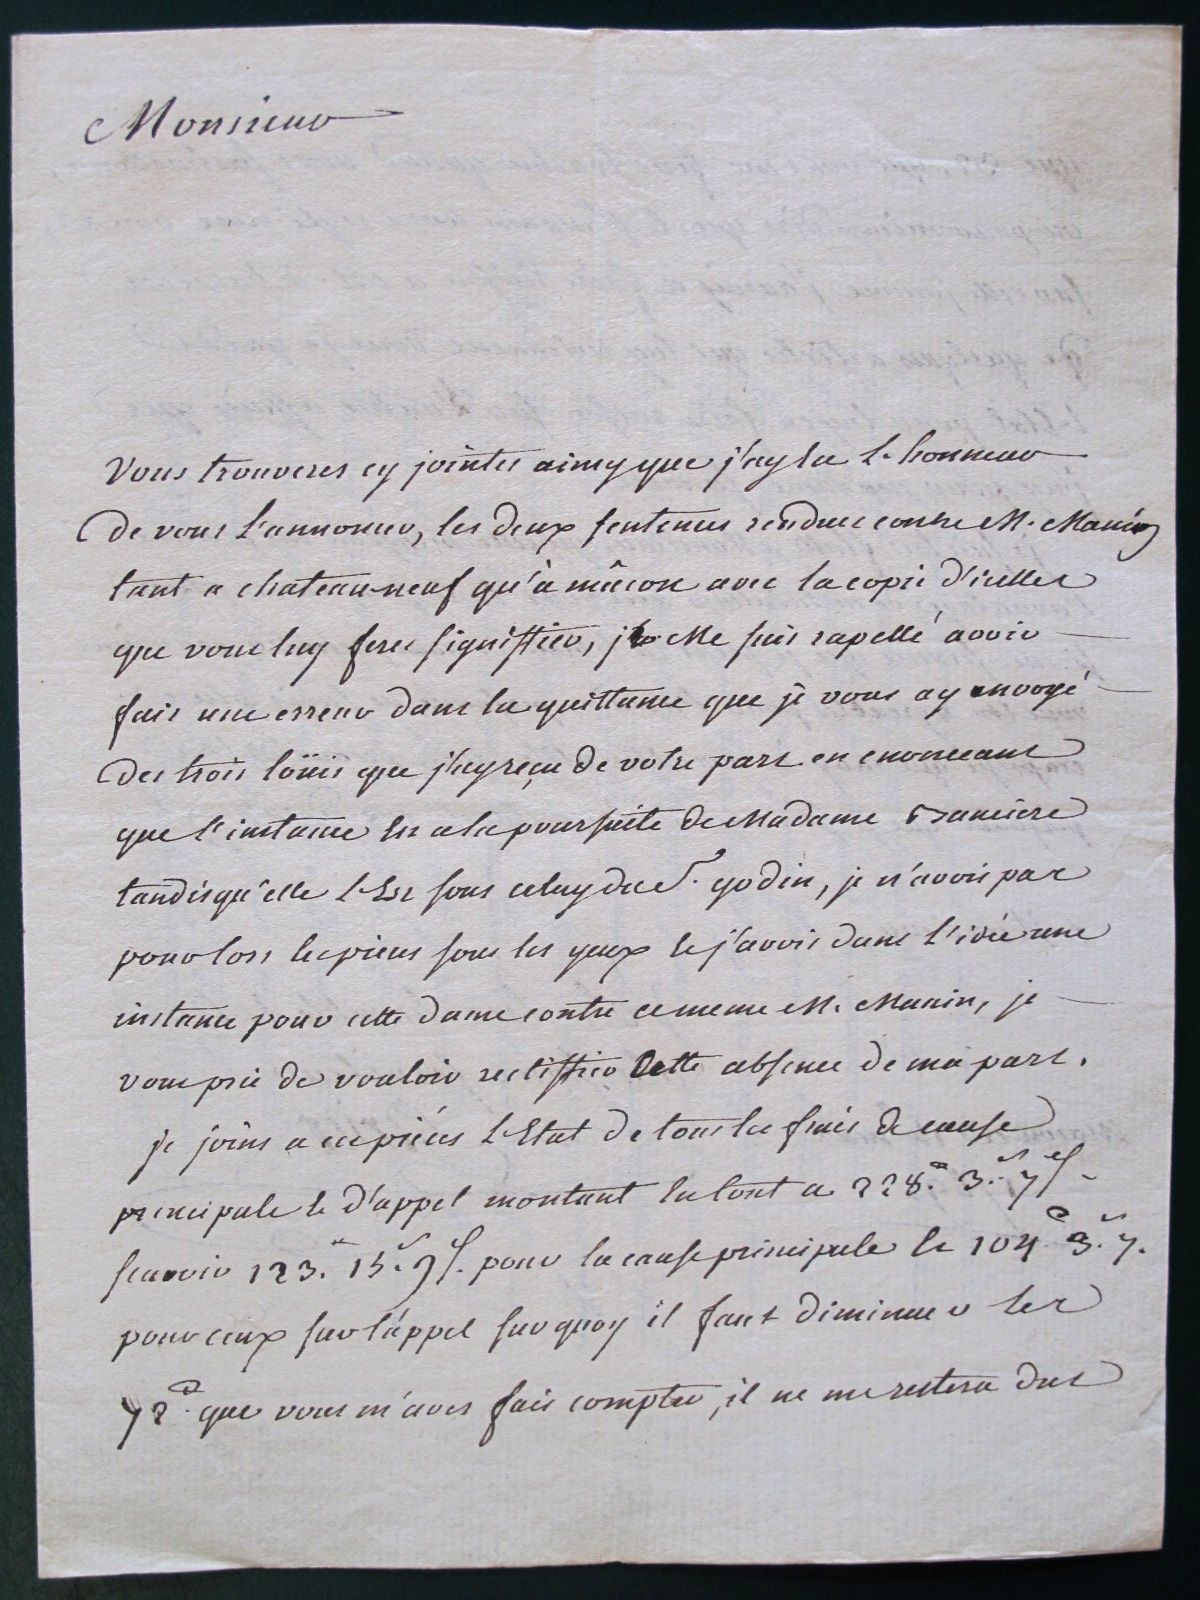 Monsieur
Vous trouveres cy jointes ainsy que j'ay eu l'honneur
de vous l'annoncer, les deux sentences rendues contre M. Manin
tant a chateauneuf qu'à mâcon avec la copie d'icelles
que vous luy feres signiffier, je me suis rapellé avoir
fais une erreur dans la quittance que je vous ay envoyé
des trois loüis que j'ay reçu de votre part en enonceant
que l'instance est a la poursuite de Madame
tandisqu'elle l'est sous celuy du Sr. godin, je n'avois pas
pour lors les pieces sous les yeux et j'avois dans l'idée une
instance pour cette dame contre ce meme M. Manin, je
vous prie de vouloir rectiffier cette absence de ma part.
je joins a ces piéces l'Etat de tous les frais de cause
principale et d'appel montant en tout a 228.# 3.s 7d
scavoir 123.# 15.s 9d. pour la cause principale et 104# 3.s 7.
pour ceux sur l'appel sur quoy il faut diminuer les
72# que vous m'aves fais compter, il ne me restera dus